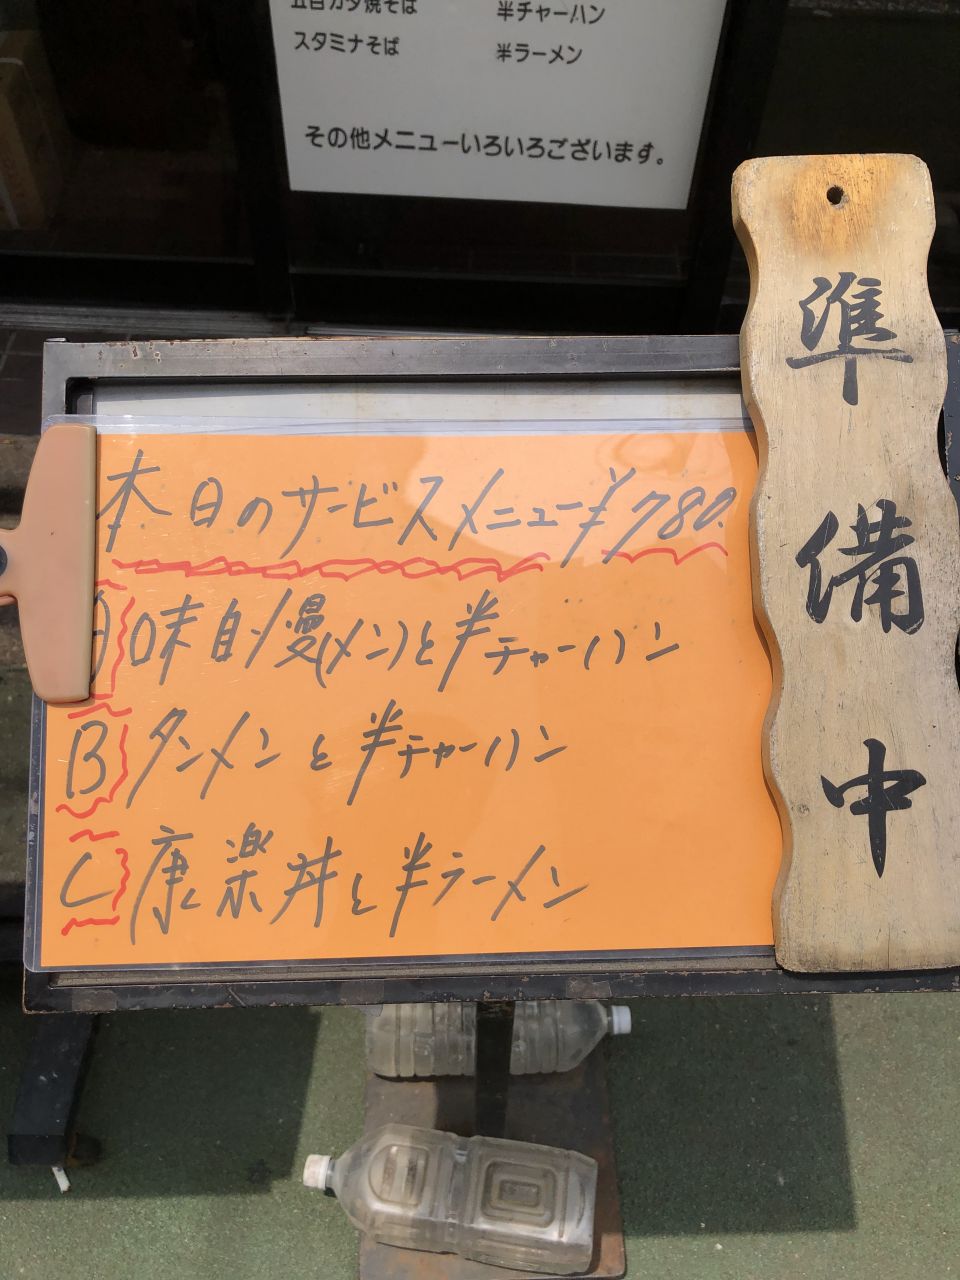 五目カタ焼そば 半チャーハン
スタミナそば 半ラーメン
その他メニューいろいろございます。
準備中
本日のサービスメニュー¥780.
A 味自慢(メン)と半チャーハン
B タンメンと半チャーハン
C 康楽丼と半ラーメン